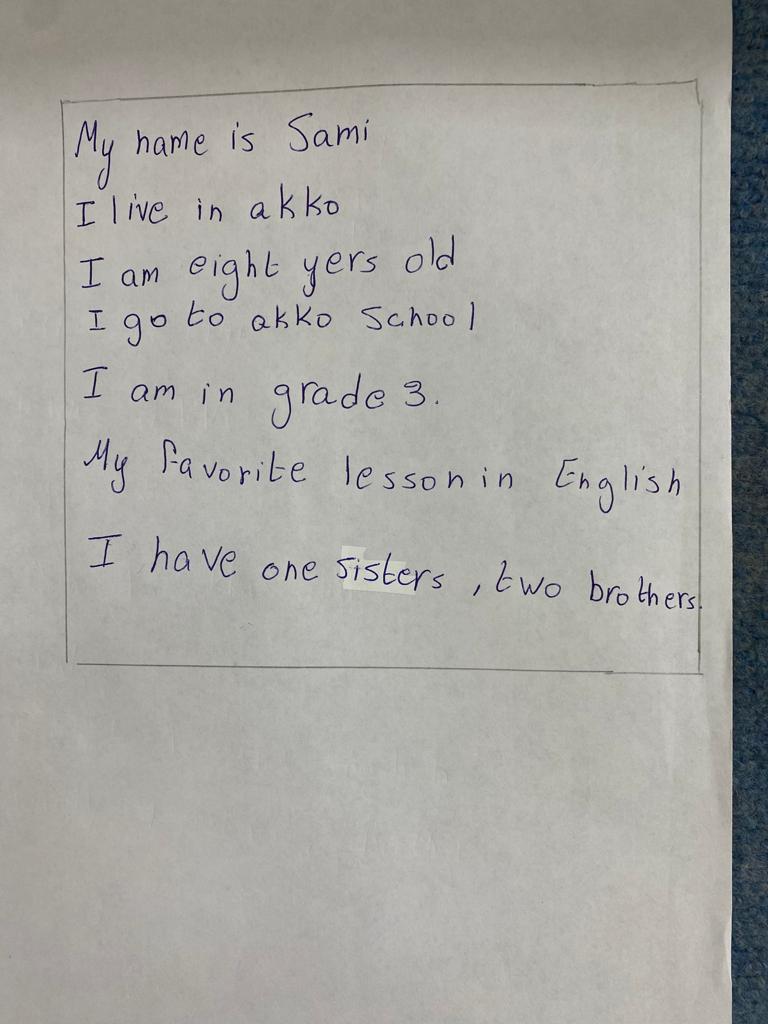 My name is Sami
I live in akko
I am eight yers old
I go to akko School
I am in grade 3.
My favorite lesson in English
I have one sisters, two brothers.